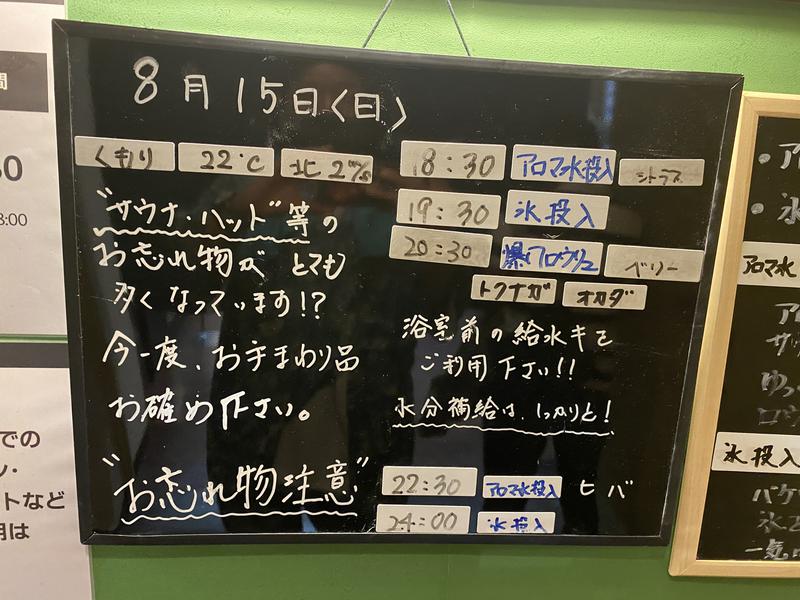 8月15日〈日〉
くもり 22℃ 北 2m/s
"サウナ・ハット"等の
お忘れ物が とても
多くなっています!?
今一度、お手まわり品
お確め下さい。
"お忘れ物注意"
18:30 アロマ水投入 シトラス
19:30 氷投入
20:30 爆ロウリュ ベリー
トクナガ オカダ
浴室前の給水キを
ご利用下さい!!
水分補給は、しっかりと!
22:30 アロマ水投入 ヒバ
24:00 氷投入
での
ン・
トなど
用は
間
8:00
アロマ水
氷投入
バケ